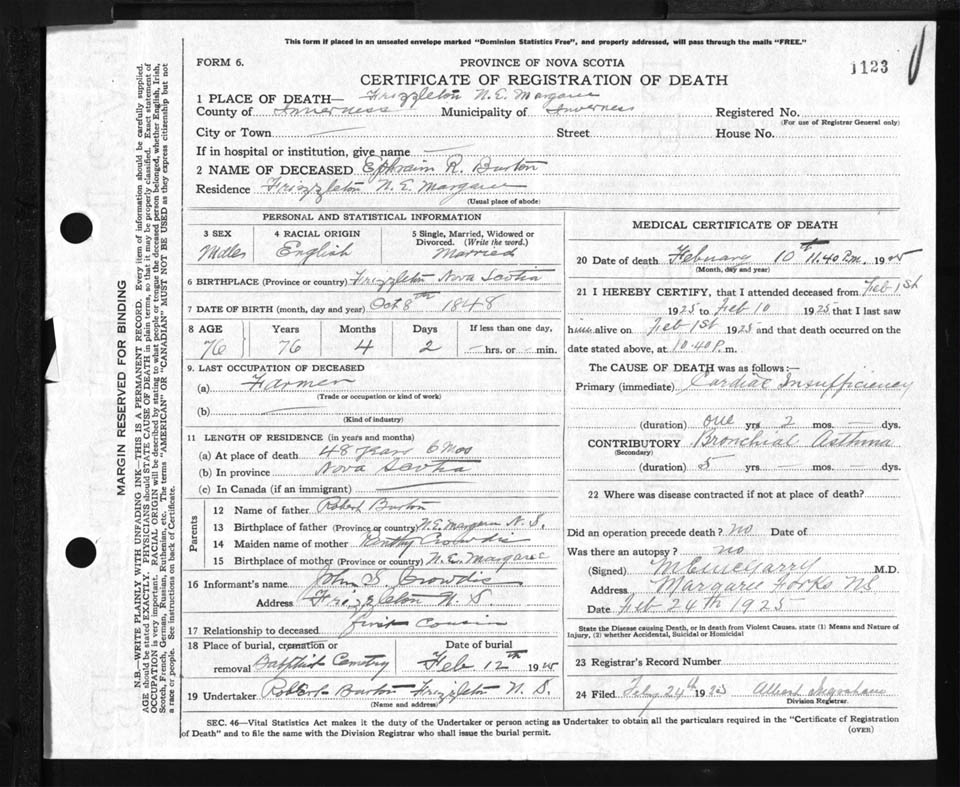 This form if placed in an unsealed envelope marked "Dominion Statistics Free", and properly addressed, will pass through the mails "FREE."
FORM 6.
PROVINCE OF NOVA SCOTIA
1123
CERTIFICATE OF REGISTRATION OF DEATH
1 PLACE OF DEATH— Frizzleton N. E. Margaree
County of Inverness Municipality of Inverness Registered No.
(For use of Registrar General only)
City or Town — Street House No.
If in hospital or institution, give name —
2 NAME OF DECEASED Ephraim R. Burton
Residence Frizzleton N. E. Margaree
(Usual place of abode)
PERSONAL AND STATISTICAL INFORMATION
3 SEX 4 RACIAL ORIGIN 5 Single, Married, Widowed or
Divorced. (Write the word.)
English Married
6 BIRTHPLACE (Province or country) Frizzleton Nova Scotia
7 DATE OF BIRTH (month, day and year) Oct 8th 1848
8 AGE Years Months Days If less than one day,
76 76 4 2 — hrs. or — min.
9. LAST OCCUPATION OF DECEASED
(a) Farmer
(Trade or occupation or kind of work)
(b) —
(Kind of industry)
11 LENGTH OF RESIDENCE (in years and months)
(a) At place of death 48 years 6 Mos
(b) In province Nova Scotia
(c) In Canada (if an immigrant) —
Parents
12 Name of father Robert Burton
13 Birthplace of father (Province or country) N. E. Margaree N. S.
14 Maiden name of mother Crowdis
15 Birthplace of mother (Province or country) N. E. Margaree
16 Informant's name John S. Crowdis
Address Frizzleton N. S.
17 Relationship to deceased first Cousin
18 Place of burial, cremation or Date of burial
removal Baptist Cemetry Feb. 12th 1925
19 Undertaker Robert Burton Frizzleton N. S.
(Name and address)
MEDICAL CERTIFICATE OF DEATH
20 Date of death February 10th 11.40 P.m. 1925
(Month, day and year)
21 I HEREBY CERTIFY, that I attended deceased from Feb 1st
1925 to Feb 10 1925 that I last saw
him alive on Feb 1st 1925 and that death occurred on the
date stated above, at 10.40 P. m.
The CAUSE OF DEATH was as follows:—
Primary (immediate) Cardiac Insufficiency
(duration) one yrs 2 mos. — dys.
CONTRIBUTORY Bronchial Asthma
(Secondary)
(duration) 5 yrs — mos. dys.
22 Where was disease contracted if not at place of death?
Did an operation precede death? no Date of
Was there an autopsy? no
(Signed) M.D.
Address Margaree Forks NS
Date Feb 24th 1925
State the Disease causing Death, or in death from Violent Causes, state (1) Means and Nature of
Injury, (2) whether Accidental, Suicidal or Homicidal
23 Registrar's Record Number
24 Filed Feby 24th 1925 Albert Ingraham
Division Registrar.
SEC. 46—Vital Statistics Act makes it the duty of the Undertaker or person acting as Undertaker to obtain all the particulars required in the "Certificate of Registration
of Death" and to file the same with the Division Registrar who shall issue the burial permit.
(OVER)
MARGIN RESERVED FOR BINDING
N.B.—WRITE PLAINLY WITH UNFADING INK—THIS IS A PERMANENT RECORD. Every item of information should be carefully supplied.
AGE should be stated EXACTLY. PHYSICIANS should STATE CAUSE OF DEATH in plain terms, so that it may be properly classified. Exact statement of
OCCUPATION is very important. RACIAL ORIGIN will be described by stating to what people or tongue the deceased person belonged, whether English, Irish,
Scotch, French, German, Russian, Ruthenian, etc. The terms "AMERICAN" or "CANADIAN" MUST NOT BE USED as they express citizenship but not
a race or people. See instructions on back of Certificate.